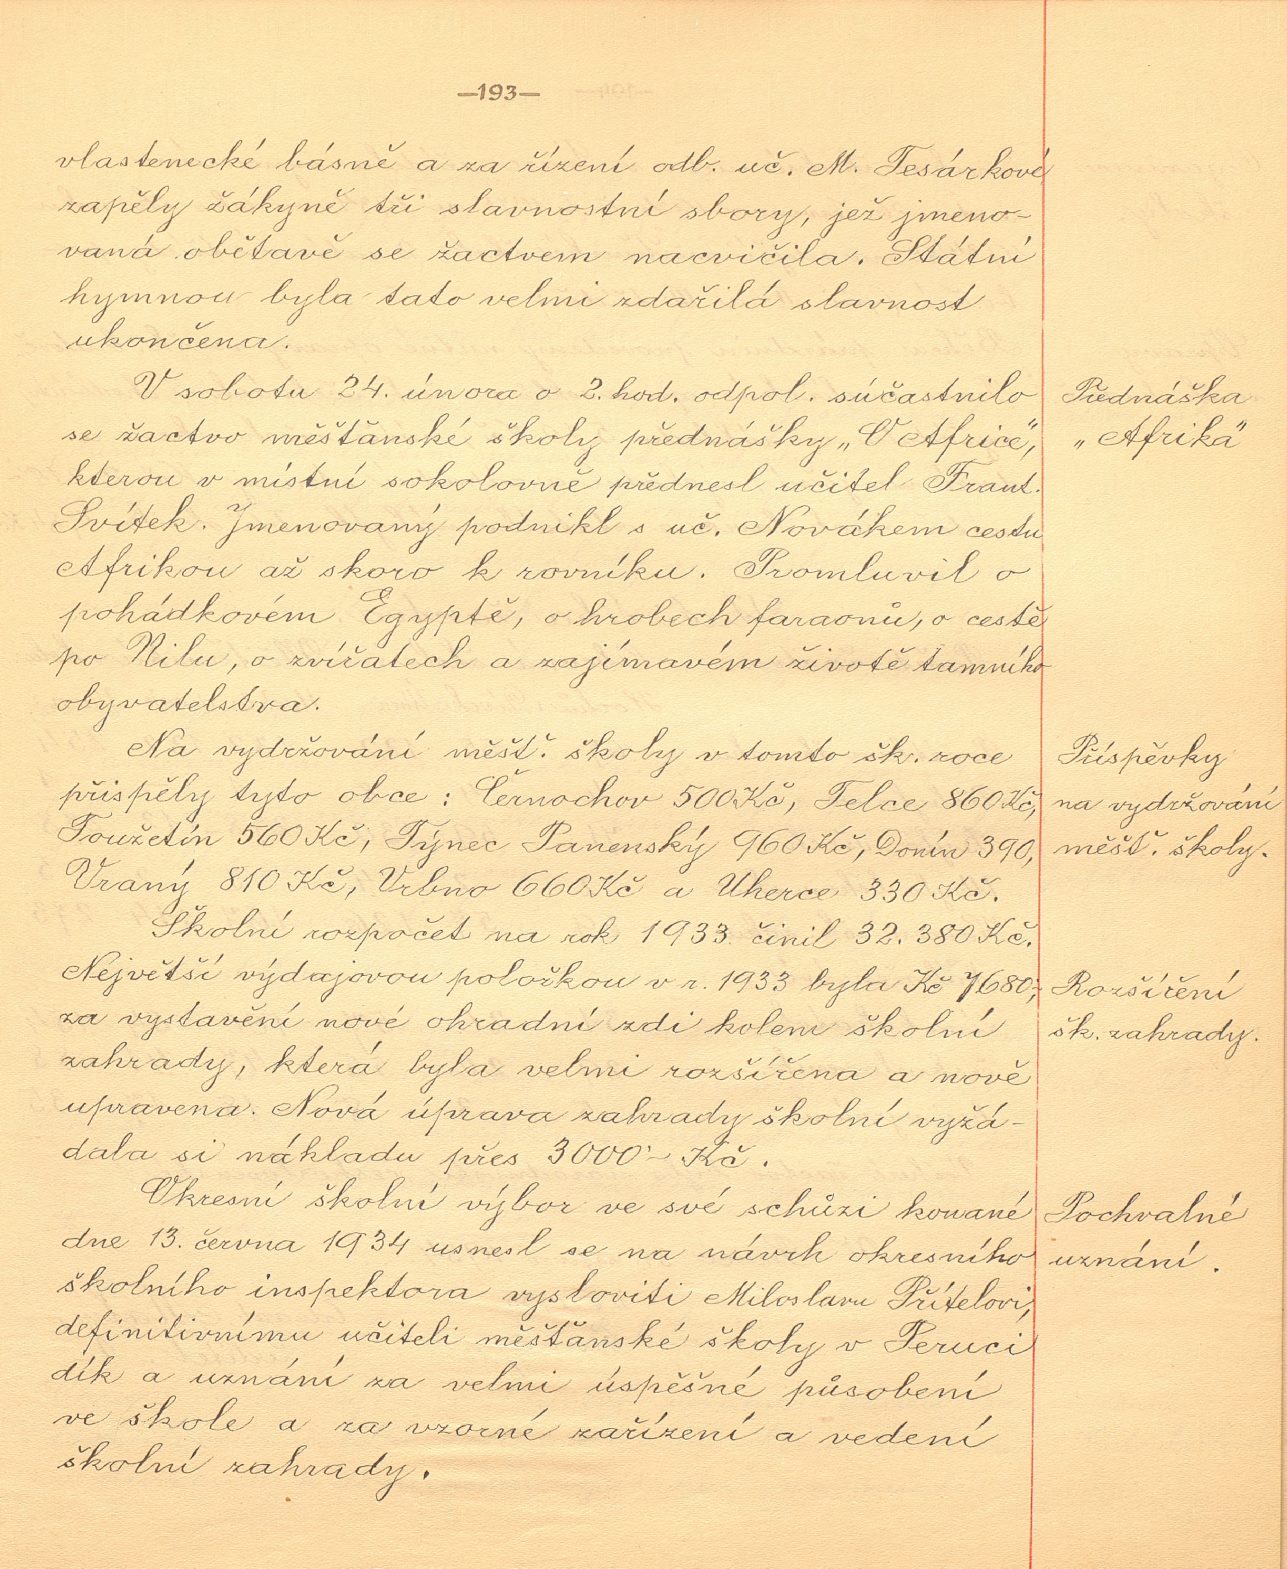 —193—
vlastenecké básně a za řízení odb. uč. M. Tesárkové
zapěly žákyně tři slavnostní sbory, jež jmeno-
vaná obětavě se žactvem nacvičila. Státní
hymnou byla tato velmi zdařilá slavnost
ukončena.
V sobotu 24. února o 2. hod. odpol. súčastnilo
Přednáška
se žactvo měšťanské školy přednášky „O Africe",
„Afrika"
kterou v místní sokolovně přednesl učitel Frant.
Svítek. Jmenovaný podnikl s uč. Novákem cestu
Afrikou až skoro k rovníku. Promluvil o
pohádkovém Egyptě, o hrobech faraonů, o cestě
po Nilu, o zvířatech a zajímavém životě tamního
obyvatelstva.
Na vydržování měšť. školy v tomto šk. roce
Příspěvky
přispěly tyto obce: Černochov 500 Kč, Telce 860 Kč,
na vydržování
Toužetín 560 Kč, Týnec Panenský 960 Kč, Donín 390,
měšť. školy.
Vraný 810 Kč, Vrbno 660 Kč a Uherce 330 Kč.
Školní rozpočet na rok 1933 činil 32.380 Kč.
Největší výdajovou položkou v r. 1933 byla Kč 7680,-
Rozšíření
za vystavění nové ohradní zdi kolem školní
šk. zahrady.
zahrady, která byla velmi rozšířena a nově
upravena. Nová úprava zahrady školní vyžá-
dala si nákladu přes 3000'- Kč.
Okresní školní výbor ve své schůzi konané
Pochvalné
dne 13. června 1934 usnesl se na návrh okresního
uznání.
školního inspektora vysloviti Miloslavu Přítelovi,
definitivnímu učiteli měšťanské školy v Peruci
dík a uznání za velmi úspěšné působení
ve škole a za vzorné zařízení a vedení
školní zahrady.